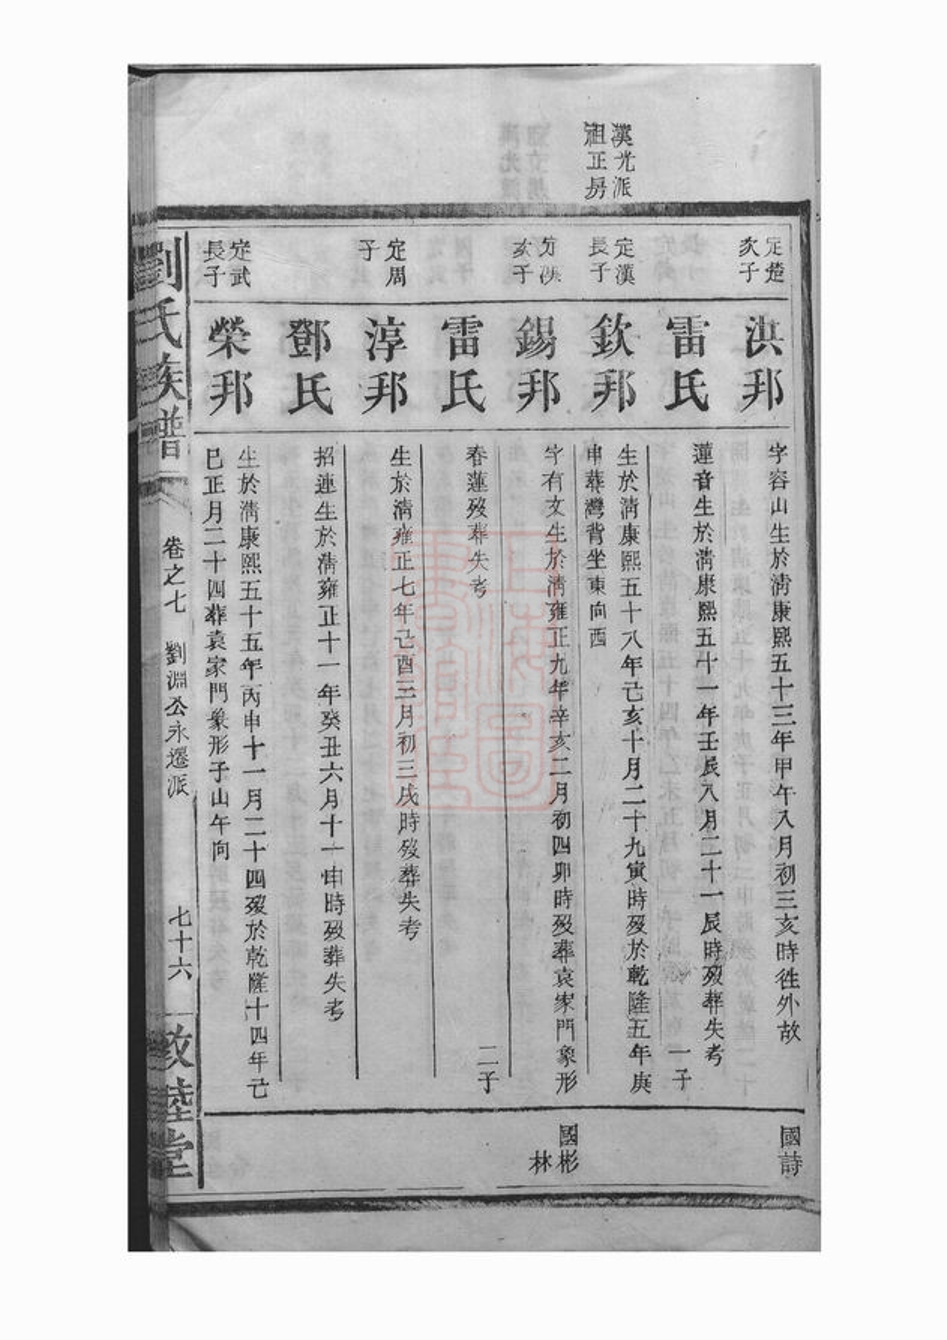 漢光派
祖正房
定楚
次子
洪邦
字容山生於清康熙五十三年甲午八月初三亥時徃外故
國詩
雷氏
蓮音生於清康熙五十一年壬辰八月二十一辰時歿葬失考
一子
定漢
長子
欽邦
生於清康熙五十八年己亥十月二十九寅時歿於乾隆五年庚
申葬灣背坐東向酉
定漢
次子
錫邦
字有文生於清雍正九年辛亥二月初四卯時歿葬袁家門象形
國彬
林
雷氏
春蓮歿葬失考
二子
定周
子
淳邦
生於清雍正七年己酉三月初三戌時歿葬失考
鄧氏
招連生於清雍正十一年癸丑六月十一申時歿葬失考
定武
長子
榮邦
生於清康熙五十五年丙申十一月二十四歿於乾隆十四年己
巳正月二十四葬袁家門象形子山午向
劉氏族譜
卷之七
劉淵公永遷派
七十六
敦睦堂